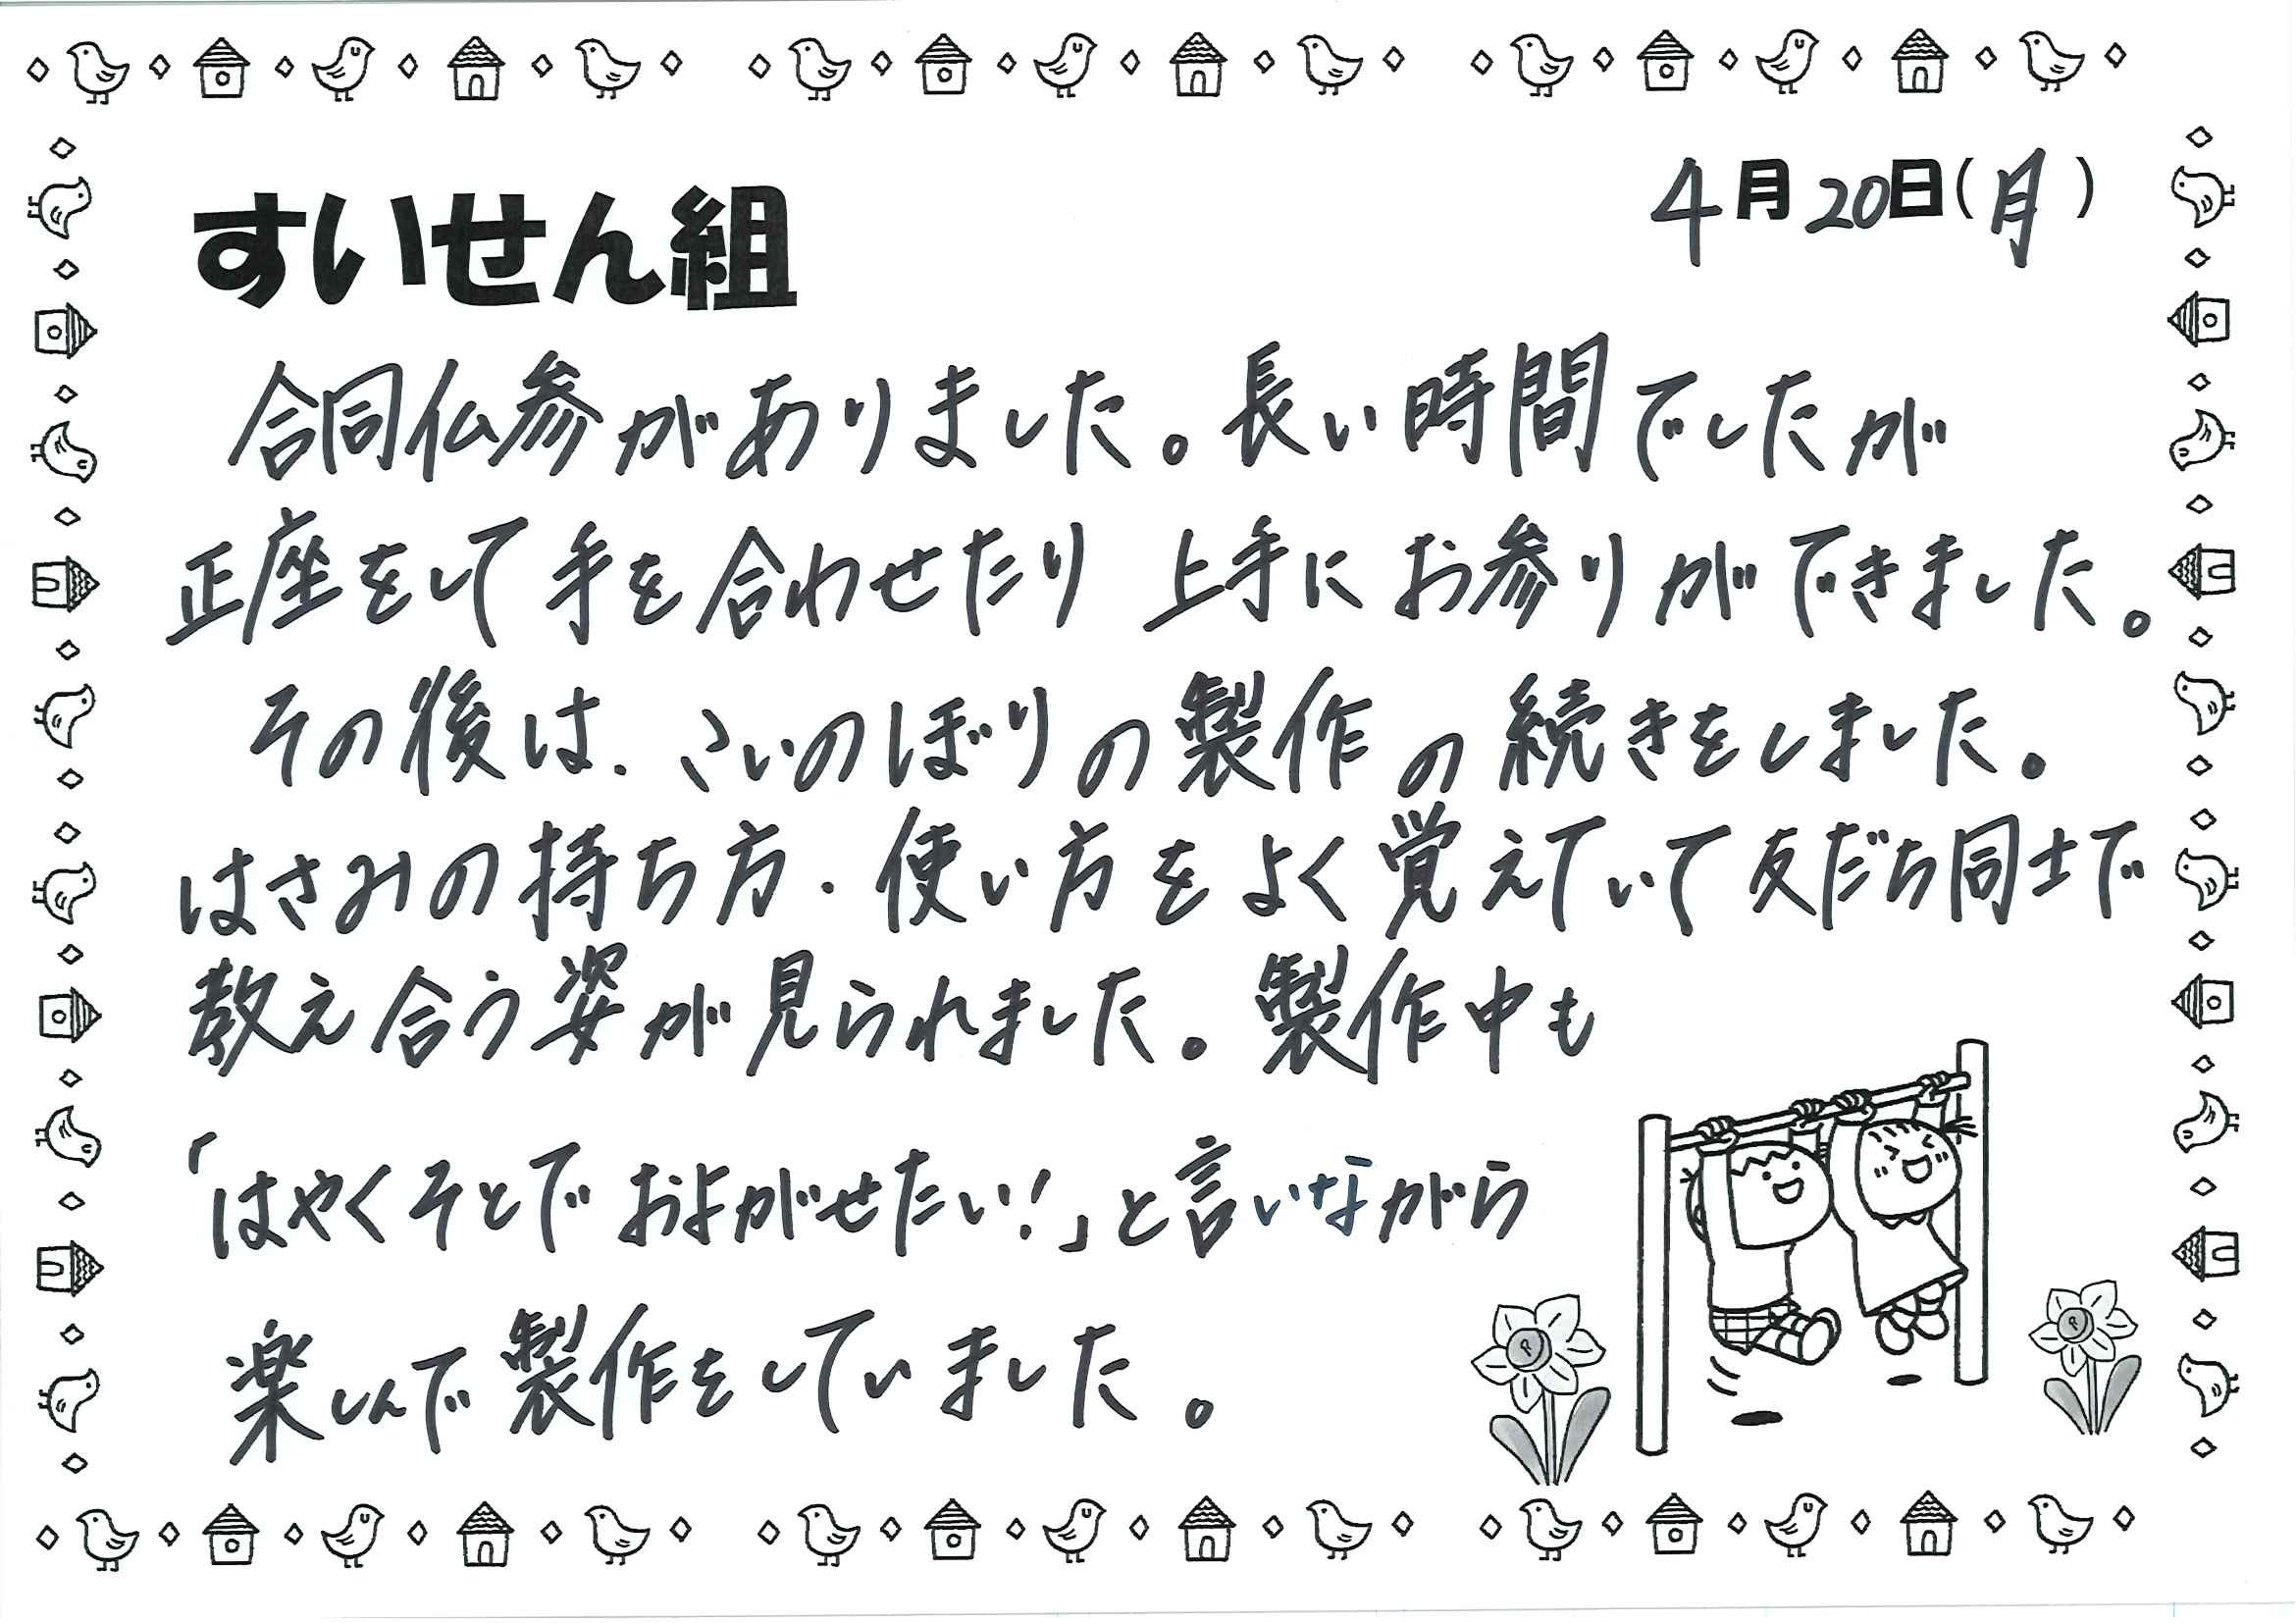 すいせん組
4月20日(月)
合同仏参がありました。長い時間でしたが
正座をして手を合わせたり 上手にお参りができました。
その後は、こいのぼりの製作の続きをしました。
はさみの持ち方・使い方をよく覚えていて友だち同士で
教え合う姿が見られました。製作中も
「はやくそとでおよがせたい!」と言いながら
楽しんで製作をしていました。